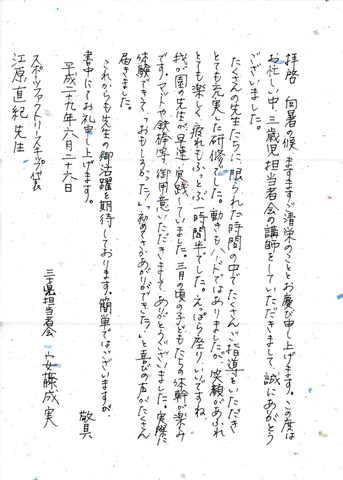 拝啓　向暑の候　ますますご清栄のこととお慶び申し上げます。この度は
お忙しい中三歳児担当者会の講師をしていただきまして、誠にありがとう
ございました。
たくさんの先生たちに、限られた時間の中でたくさんご指導をいただき
とても充実した研修でした。動きもハードではありましたが、笑顔があふれ
とても楽しく、疲れもふっとぶ一時間半でした。えほうら座り、いいですね。
我が園の先生が早速実践していました。三月の頃の子どもたちの体幹が楽しみ
です。マットや鉄棒等、御用意いただきましてありがとうございました。実際に
体験できて「おもしろかった！」「初めてさかあがりができた！」と喜びの声がたくさん
届きました。
これからも先生の御活躍を期待しております。簡単ではございますが、
書中にてお礼申し上げます。
敬具
平成二十九年六月二十六日
三歳児担当者会　安藤成実
スポーツファクトリースキップ代表
江原直紀先生